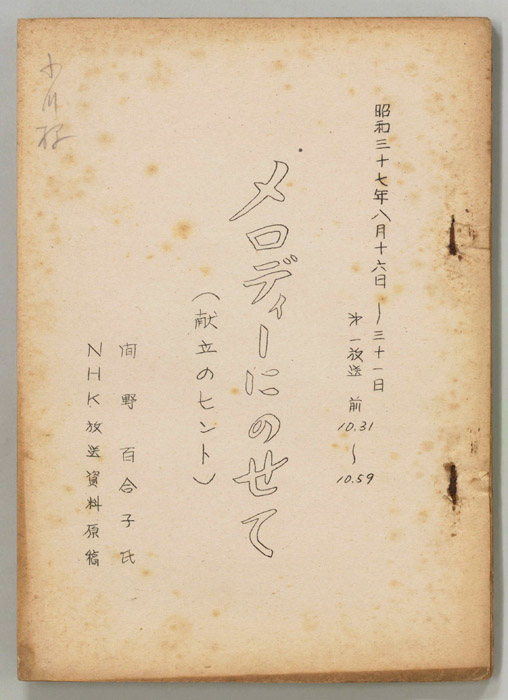 昭和三十七年八月十六日～三十一日
第一放送 前 10.31～10.59
メロディーにのせて
（献立のヒント）
間野百合子氏
NHK放送資料原稿
小川